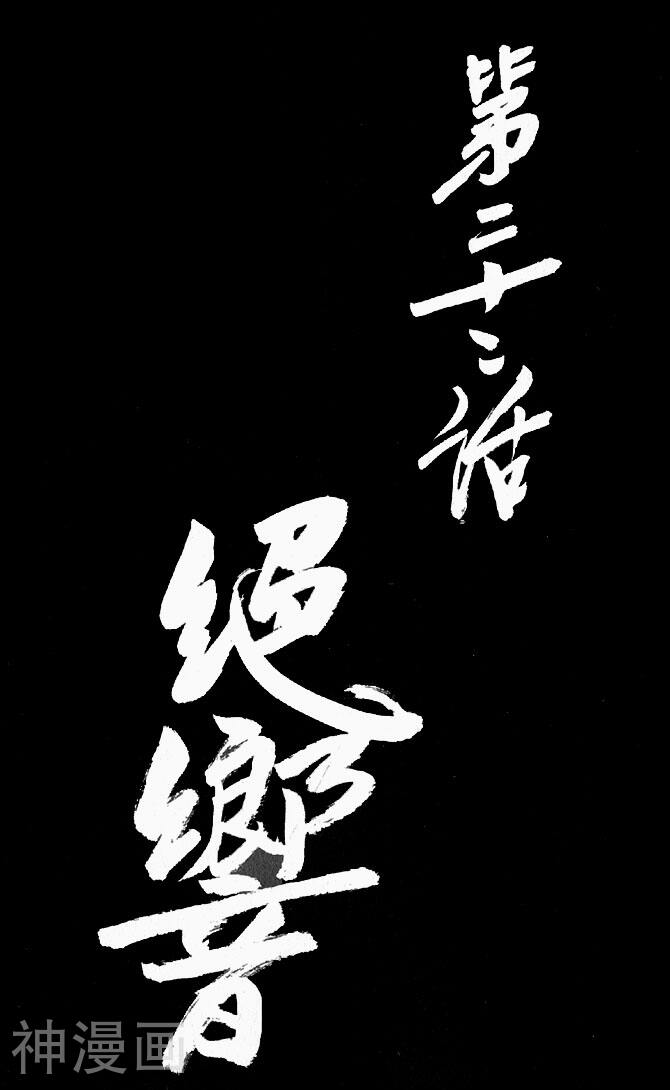 第二十二話
絕響
神漫画